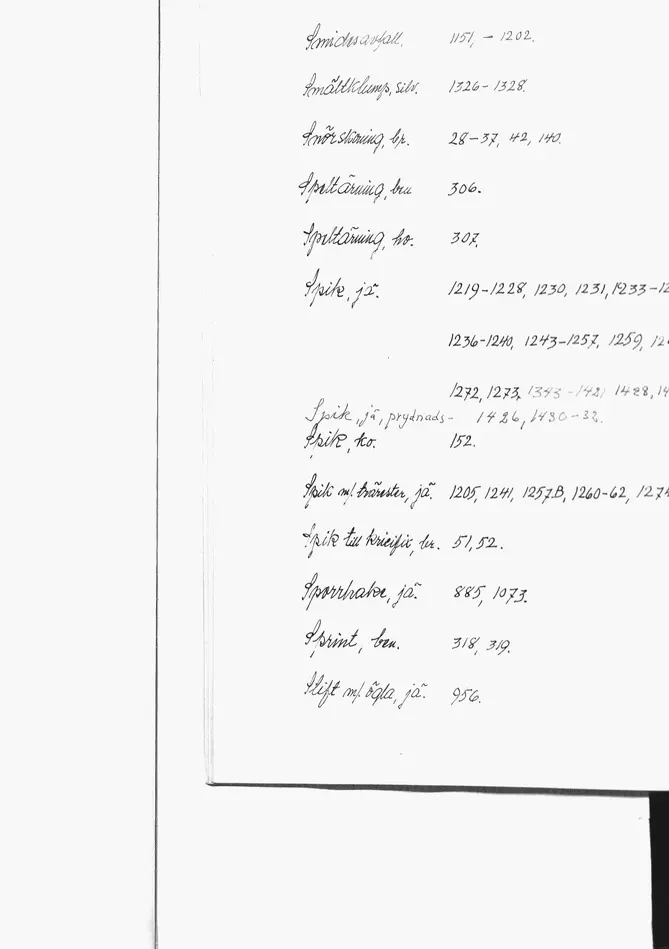 Smidesavfall. 1151, – 1202.
Smältklump, silv. 1326 – 1328.
Snörskoning, br. 28 – 37, 42, 140.
Speltärning, ben 306.
Speltärning, ho. 307.
Spik, jä. 1219 – 1228, 1230, 1231, 1233 – 12
1236 – 1240, 1243 – 1257, 1259, 12
1272, 1273, 1343 – 1421 1428, 14
Spik, jä, prydnads – 1426, 1430 – 32.
Spik, ko. 152.
Spik m/. tvärester, jä. 1205, 1241, 1257B, 1260-62, 1274
Spik till krucifix, br. 51, 52.
Sporrhake, jä. 885, 1073.
Sprint, ben. 318, 319.
Stift m/. ögla, jä. 956.